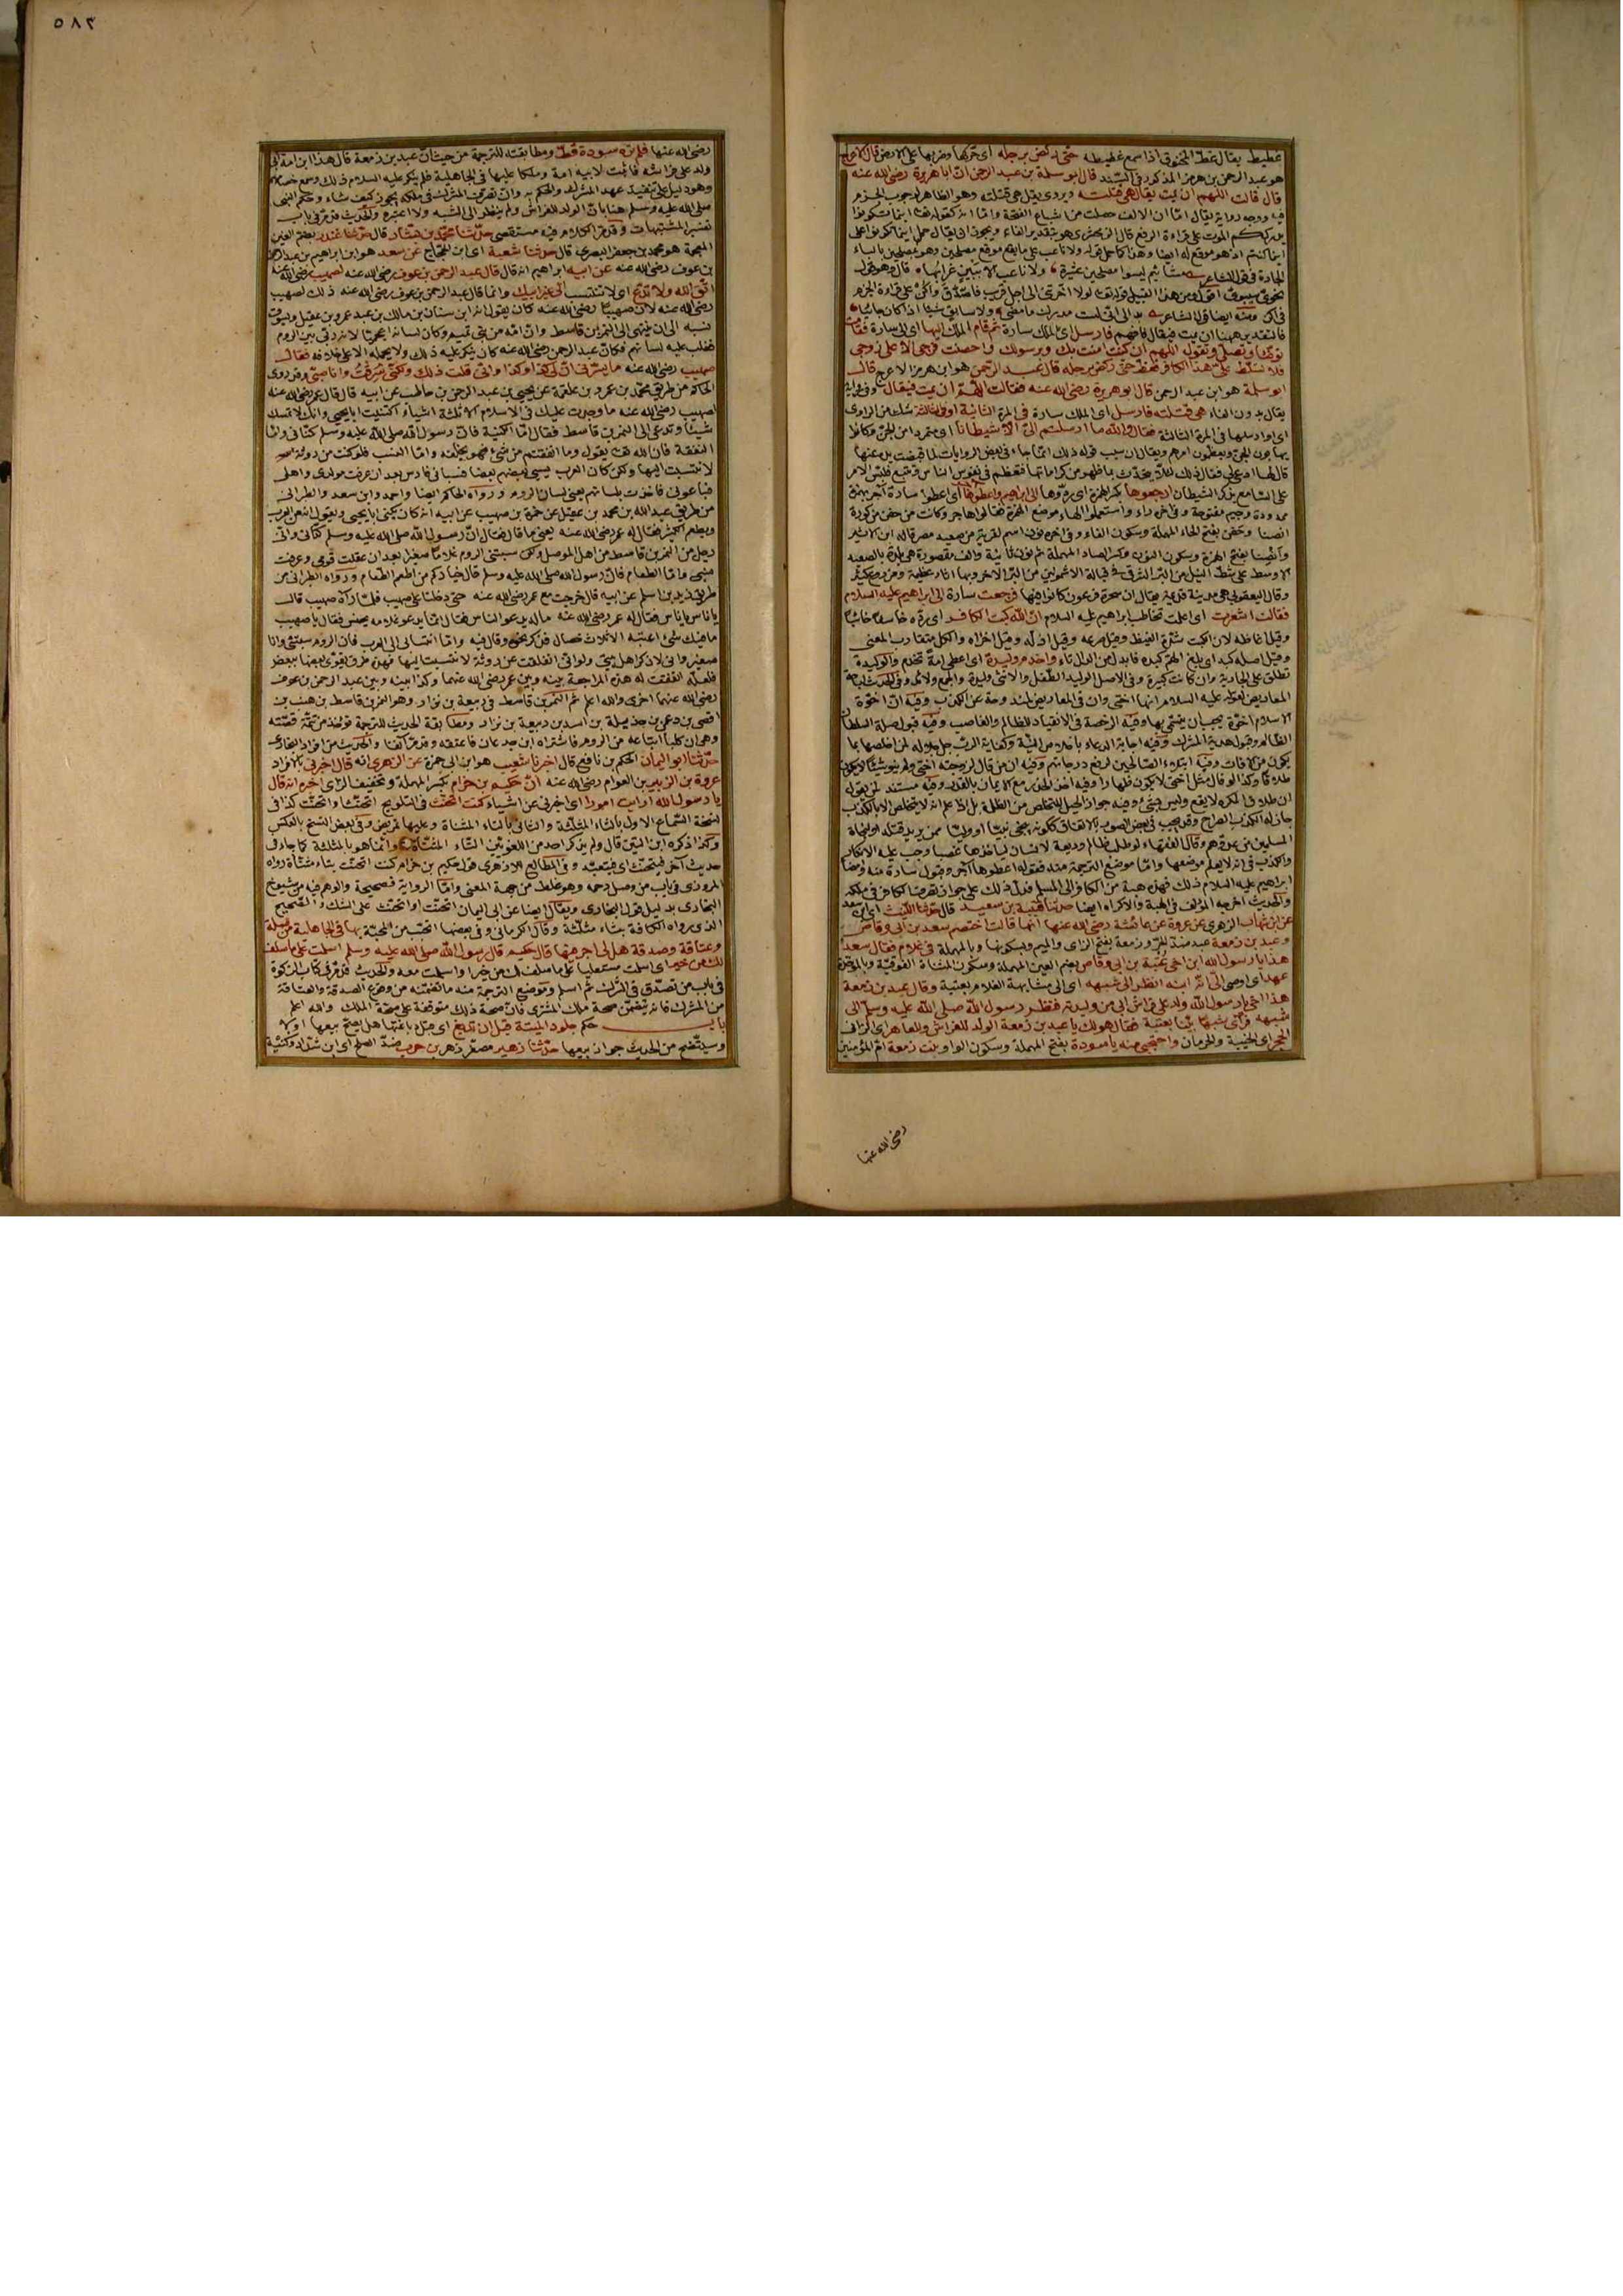 غطيط يقال غط المخنوق اذا سمع غطيطه حتى ركض برجله اى حركها وضربها على الارض قال الاعرج
هو عبد الرحمن بن هرمز المذكور فى السند قال ابو سلمة بن عبد الرحمن ان ابا هريرة رضى الله عنه
قال قالت اللهم ان يمت يقال هى قتلته ويروى يقل هى قتلته وهو الظاهر لوجوب الجزم
فيه ووجه رواية يقال اما ان الالف حصلت من اشباع الفتحة واما انه كقوله تعا اينما تكونوا
يدرككم الموت على قراءة الرفع قال الزمخشرى هو بتقدير الفاء ويجوز ان يقال حمل اينما تكونوا على
نخوى سيبوى اقول ومن هذا القبيل قوله تعا لولا اخرتنى الى اجل قريب فاصدق واكن على قراءة الجزم
فالتقدير ههنا ان يمت فيقال فارسل اى الملك سارة ثم قام الملك اليها اى الى سارة فقامت
توضأ وتصلى وتقول اللهم ان كنت امنت بك وبرسولك واحصنت فرجى الا على زوجى
فلا تسلط على هذا الكافر فغط حتى ركض برجله قال عبد الرحمن هو ابن هرمز الاعرج قال
ابو سلمة هو ابن عبد الرحمن قال ابو هريرة رضى الله عنه فقالت اللهم ان يمت فيقال وفى رواية
يقال بدون الفاء هى قتلته فارسل اى الملك سارة فى المرة الثانية او فى الثالثة شك من الراوى
اى او ارسلها فى المرة الثالثة فقال والله ما ارسلتم الى الا شيطانا اى متمردا من الجن وكانوا
يهابون الجن ويعظمون امرهم ويقال ان سبب قوله ذلك انما جاء فى بعض الروايات لما قبضت يده عنها
قال لها ادعى لى فقال ذلك لئلا يتحدث بما ظهر من كراماتها فتعظم فى نفوس الناس وتتبع فلبس الامر
على السامع بذكر الشيطان ارجعوها بكسر الهمزة اى ردوها الى ابراهيم واعطوها اى اعطوا سارة آجر بهمزة
ممدودة وجيم مفتوحة وفى آخره راء واستعملوا الهاء موضع الهمزة فقالوا هاجر وكانت من حفن من كورة
انصنا وحفن بفتح الحاء المهملة وسكون الفاء وفى اخره نون اسم لقرية من صعيد مصر قاله ابن الاثير
وانصنا بفتح الهمزة وسكون النون وكسر الصاد المهملة ثم نون ثانية والف مقصورة هى بلدة بالصعيد
الاوسط على شط النيل من البر الشرقى فى قبالة الاشمونين من البر الاخر وبها اثار عظيمة ومزدرع كثير
وقال اليعقوبى هى مدينة قديمة يقال ان سحرة فرعون كانوا فيها فرجعت سارة الى ابراهيم عليه السلام
فقالت اشعرت اى اعلمت تخاطب ابراهيم عليه السلام ان الله كبت الكافر اى رده خاسئا خائبا
وقيل اغاظه لان الكبت شدة الغيظ وقيل صرعه وقيل اذله وقيل اخزاه والكل متقارب المعنى
وقيل اصله كبد اى بلغ الهم كبده فابدل من الدال تاء واخدم وليدة اى اعطى امة تخدم والوليدة
تطلق على الجارية وان كانت كبيرة وفى الاصل الوليد الطفل والانثى وليدة والجمع ولائد وفى الحديث اباحة
المعاريض لقوله عليه السلام انها اختى وان فى المعاريض لمندوحة عن الكذب وفيه ان اخوة
الاسلام اخوة يجب ان ينتمى بها وفيه الرخصة فى الانقياد للظالم والغاصب وفيه قبول صلة السلطان
الظالم وقبول هدية المشرك وفيه اجابة الدعاء باخلاص النية وكفاية الرب جل جلاله لمن اخلصها بما
يكون من الافات وفيه ابتلاء الصالحين لرفع درجاتهم وفيه ان من قال لزوجته اختى ولم ينو شيئا لا يكون
طلاقا وكذا لو قال مثل اختى لا يكون ظهارا وفيه اخذ الحذر مع الايمان بالقدر وفيه مستند لمن يقول
ان طلاق المكره لا يقع وليس بشئ وفيه جواز الحيل للتخلص من الظلمة بل اذا علم انه لا يتخلص الا بالكذب
جاز له الكذب الصراح وقد يجب فى بعض الصور بالاتفاق ككونه ينجى نبيا او وليا ممن يريد قتله او لنجاة
المسلمين من عدوهم وقال الفقهاء لو طلب ظالم وديعة لانسان لياخذها غصبا وجب عليه الانكار
والكذب فى انه لا يعلم موضعها واما موضع الترجمة منه فقوله اعطوها آجر وقبول سارة منه وامضاء
ابراهيم عليه السلام ذلك فهذه هبة من الكافر الى المسلم فدل ذلك على جواز تصرف الكافر فى ملكه
والحديث اخرجه المؤلف فى الهبة والاكراه ايضا حدثنا قتيبة بن سعيد قال حدثنا الليث اى ابن سعد
عن ابن شهاب الزهرى عن عروة عن عائشة رضى الله عنها انها قالت اختصم سعد بن ابى وقاص
وعبد بن زمعة عبد ضد للحر وزمعة بفتح الزاى والميم وبسكونها وبالمهملة فى غلام فقال سعد
هذا يا رسول الله ابن اخى عتبة بن ابى وقاص بضم العين المهملة وسكون المثناة الفوقية وبالموحدة
عهد اى اوصى الى انه ابنه انظر الى شبهه اى الى مشابهة الغلام بعتبة وقال عبد بن زمعة
هذا اخى يا رسول الله ولد على فراش ابى من وليدته فنظر رسول الله صلى الله عليه وسلم الى
شبهه فرأى شبها بينا بعتبة فقال هو لك يا عبد بن زمعة الولد للفراش وللعاهر اى الزانى
الحجر اى الخيبة والحرمان واحتجبى منه يا سودة بفتح المهملة وسكون الواو بنت زمعة ام المؤمنين
رضى الله عنها
٥٨٣
رضى الله عنها فلم تره سودة قط ومطابقته للترجمة من حيث ان عبد بن زمعة قال هذا ابن امة ابى
ولد على فراشه فاثبت لابيه امة وملكا عليها فى الجاهلية فلم ينكر عليه السلام ذلك وسمع خصامهما
وهو دليل على تنفيذ عهد المشرك والحكم به وان تصرف المشرك فى ملكه يجوز كيف شاء وحكم النبى
صلى الله عليه وسلم هنا بان الولد للفراش ولم ينظر الى الشبه ولا اعتبره والحديث قد مر فى باب
تفسير المشتبهات وقد مر الكلام فيه مستقصى حدثنا محمد بن بشار قال حدثنا غندر بضم الغين
المعجمة هو محمد بن جعفر البصرى قال حدثنا شعبة اى ابن الحجاج عن سعد هو ابن ابراهيم بن عبد الرحمن
بن عوف رضى الله عنه عن ابيه ابراهيم انه قال قال عبد الرحمن بن عوف رضى الله عنه لصهيب رضى الله عنه
اتق الله ولا تدع اى لا تنتسب الى غير ابيك وانما قال عبد الرحمن بن عوف رضى الله عنه ذلك لصهيب
رضى الله عنه لان صهيبا رضى الله عنه كان يقول انه ابن سنان بن مالك بن عبد عمرو بن عقيل ويسوق
نسبه الى ان ينتهى الى النمر بن قاسط وان امه من بنى تميم وكان لسانه اعجميا لانه ربى بين الروم
فغلب عليه لسانهم فكان عبد الرحمن رضى الله عنه كان ينكر عليه ذلك ولا يحمله الا على خلافه فقال
صهيب رضى الله عنه ما يسرنى ان لى كذا وكذا وانى قلت ذلك ولكنى سرقت وانا صبى وقد روى
الحاكم من طريق محمد بن عمرو بن علقمة عن يحيى بن عبد الرحمن بن حاطب عن ابيه قال قال عمر رضى الله عنه
لصهيب رضى الله عنه ما وجدت عليك فى الاسلام الا ثلثة اشياء اكتنيت ابا يحيى وانك لا تمسك
شيئا وتدعى الى النمر بن قاسط فقال اما الكنية فان رسول الله صلى الله عليه وسلم كنانى واما
النفقة فان الله تعا يقول وما انفقتم من شئ فهو يخلفه واما النسب فلو كنت من روثة
لانتسبت اليها ولكن كان العرب يسبى بعضهم بعضا فسبانى ناس بعد ان عرفت مولدى واهلى
فباعونى فاخذت بلسانهم يعنى لسان الروم ورواه الحاكم ايضا واحمد وابن سعد والطبرانى
من طريق عبد الله بن محمد بن عقيل عن حمزة بن صهيب عن ابيه انه كان يكنى ابا يحيى ويقول انه من العرب
ويطعم الكثير فقال له عمر رضى الله عنه يعنى ما قال فقال ان رسول الله صلى الله عليه وسلم كنانى وانى
رجل من النمر بن قاسط من اهل الموصل ولكن سبتنى الروم غلاما صغيرا بعد ان عقلت قومى وعرفت
نسبى واما الطعام فان رسول الله صلى الله عليه وسلم قال خياركم من اطعم الطعام ورواه الطبرانى من
طريق زيد بن اسلم عن ابيه قال خرجت مع عمر رضى الله عنه حتى دخلنا على صهيب فلما رآه صهيب قال
يا ناس يا ناس فقال له عمر رضى الله عنه ماله يدعو الناس فقال انما يدعو غلامه يحنس فقال يا صهيب
ما فيك شئ اعيبه الا ثلاث خصال فذكر نحوه وقال فيه واما انتسابى الى العرب فان الروم سبتنى وانا
صغير وانى لاذكر اهل بيتى ولو انى انفلقت عن روثة لانتسبت اليها فهذه طرق يقوى بعضها ببعض
فلعله اتفقت له هذه المراجعة بينه وبين عمر رضى الله عنهما وكذا بينه وبين عبد الرحمن بن عوف
رضى الله عنهما اخرى والله اعلم ثم النمر بن قاسط فى ربيعة بن نزار وهو النمر بن قاسط بن هنب بن
افصى بن دعمى بن جديلة بن اسد بن ربيعة بن نزار ومطابقة الحديث للترجمة تؤخذ من تتمة قصته
وهى ان كلبا ابتاعه من الروم فاشتراه ابن جدعان فاعتقه وقد مر آنفا والحديث من افراد البخارى
حدثنا ابو اليمان الحكم بن نافع قال اخبرنا شعيب هو ابن ابى حمزة عن الزهرى انه قال اخبرنى بالافراد
عروة بن الزبير بن العوام رضى الله عنه ان حكيم بن حزام بكسر المهملة وتخفيف الزاى اخبره انه قال
يا رسول الله ارايت امورا اى اخبرنى عن اشياء كنت اتحنث فى التلويح اتحنث او اتحنت كذا فى
نسخة السماع الاول بالثاء المثلثة والثانى بالتاء المثناة وعليها تمريض وفى بعض النسخ بالعكس
وكذا ذكره ابن التين قال ولم يذكر احد من اللغويين التاء المثناة وانما هو بالمثلثة كما جاء فى
حديث آخر فيتحنث اى فيتعبد وفى المطالع الازهرى قول حكيم بن حزام كنت اتحنت بتاء مثناة رواه
المروزى فى باب من وصل رحمه وهو غلط من جهة المعنى واما الرواية فصحيحة والوهم فيه من شيوخ
البخارى بدليل قول البخارى ويقال ايضا عن ابى اليمان اتحنت او اتحنث على الشك والصحيح
الذى رواه الكافة بثاء مثلثة وقال الكرمانى وفى بعضها اتجنب من بها فى الجاهلية من صلة
وعتاقة وصدقة هل لى اجر فيها قال حكيم قال رسول الله صلى الله عليه وسلم اسلمت على ما سلف
لك من خير اى اسلمت مستعليا على ما سلف لك من خير او اسلمت معه والحديث قد مر فى كتاب الزكوة
فى باب من تصدق فى الشرك ثم اسلم وموضع الترجمة منه ما تضمنته من وقوع الصدقة والعتاقة
من المشرك فانه يتضمن صحة ملك المشرك فان صحة ذلك متوقفة على صحة الملك والله اعلم
باب حكم جلود الميتة قبل ان تدبغ اى قبل دباغتها هل يصح بيعها اولا
وسيتضح من الحديث جواز بيعها حدثنا زهير مصغر زهر بن حرب ضد الصلح اى ابن شداد وكنيته